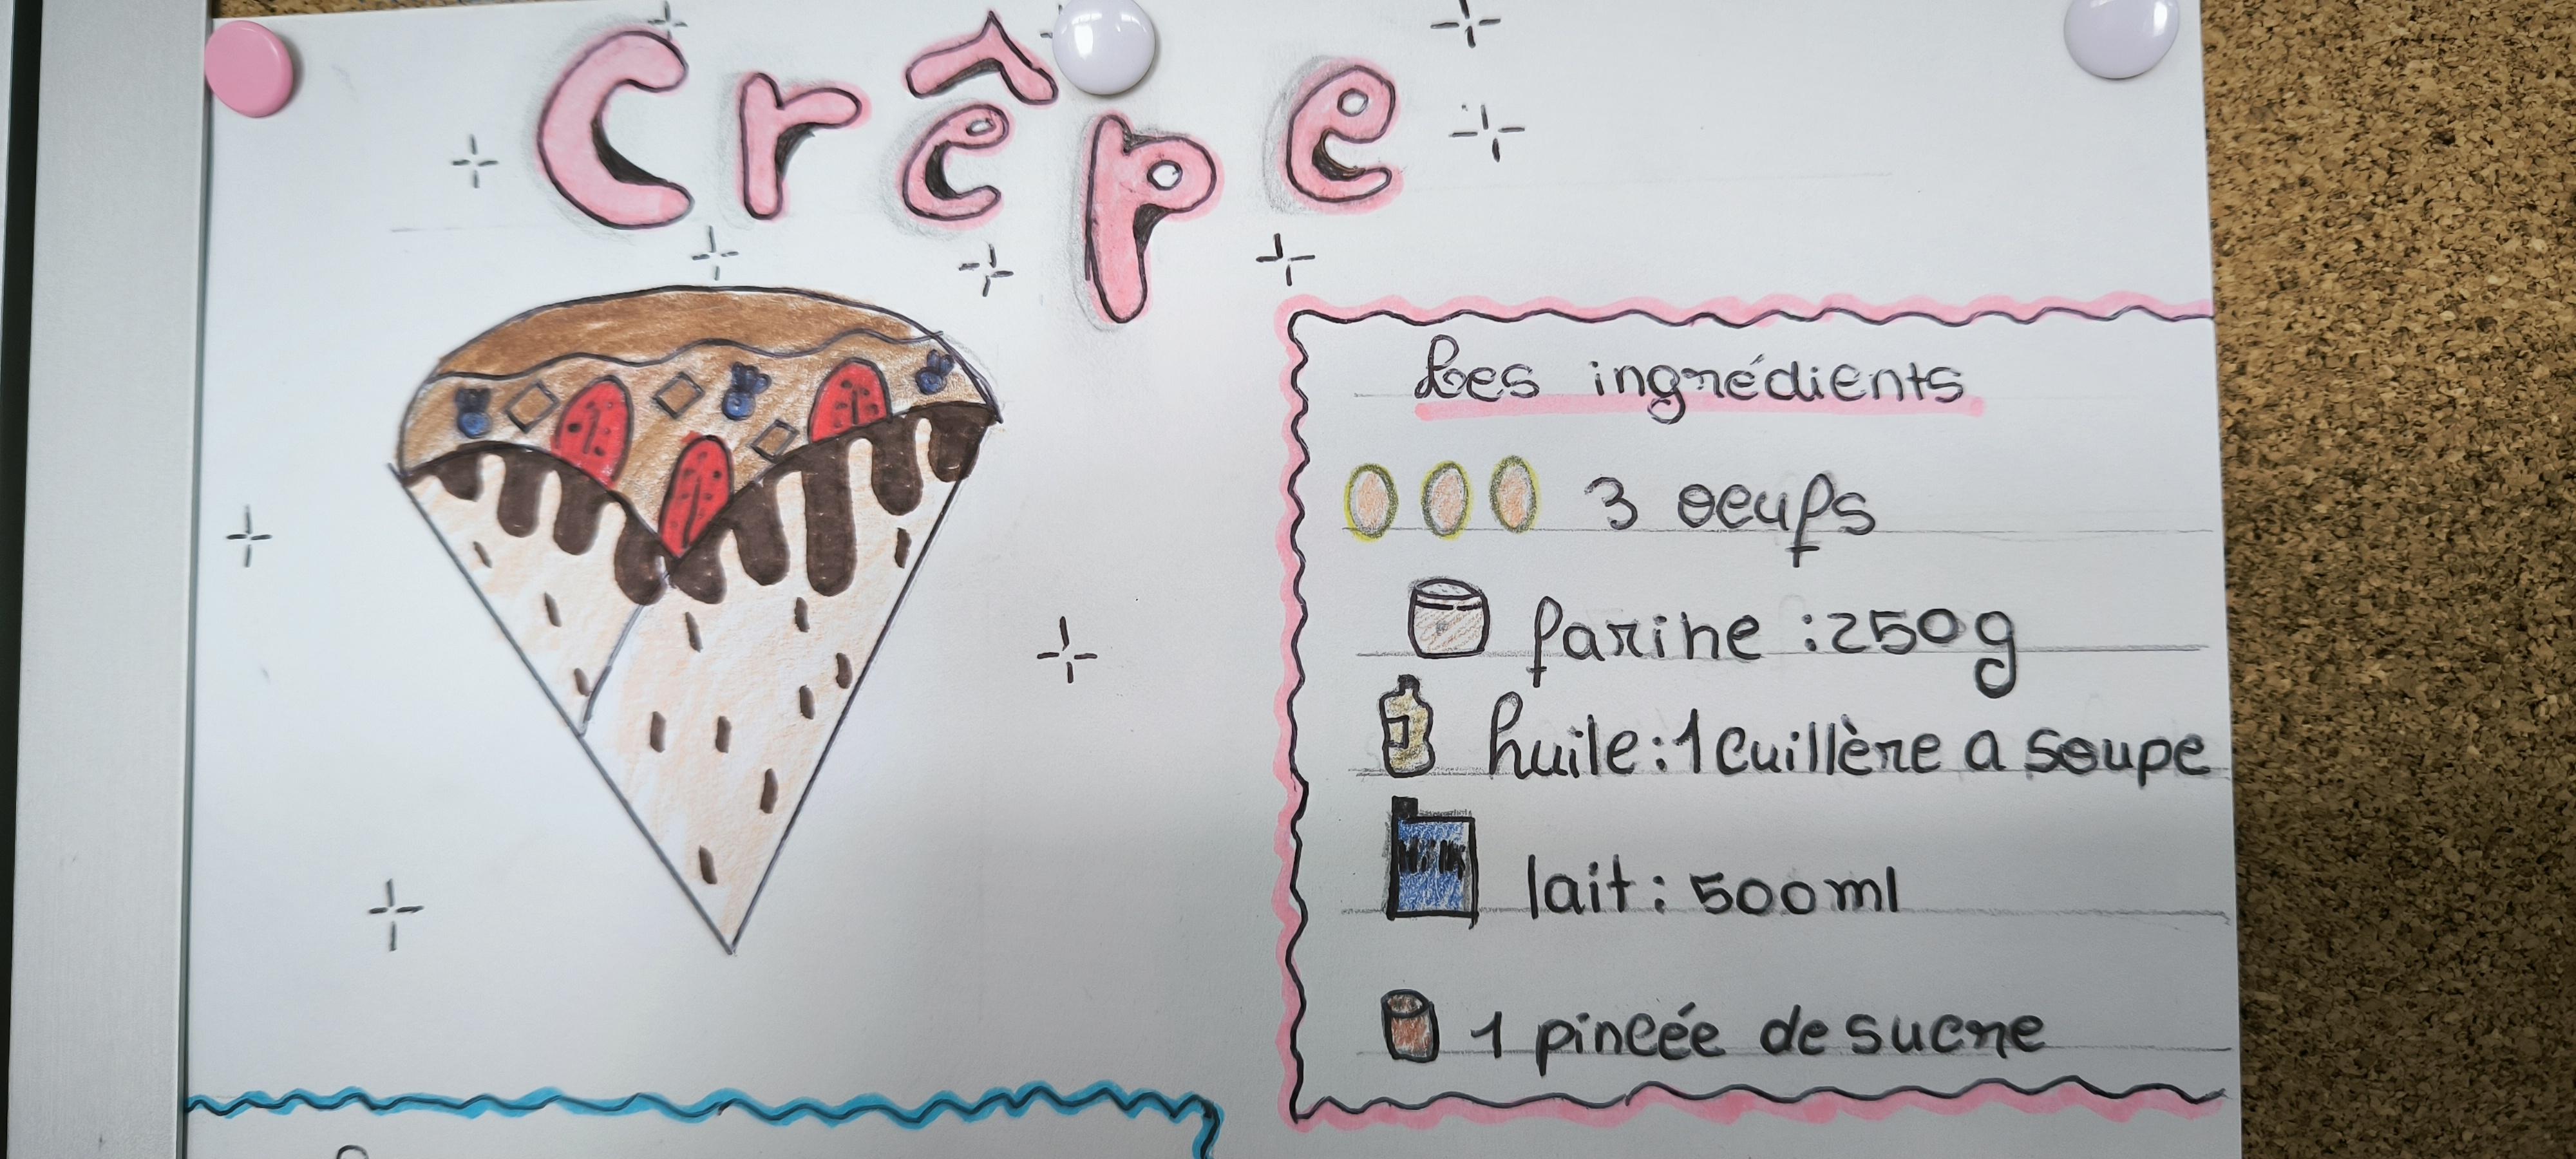 Crêpe
Les ingrédients
3 oeufs
farine :250g
huile:1 cuillère a soupe
Milk
lait: 500ml
1 pincée de sucre